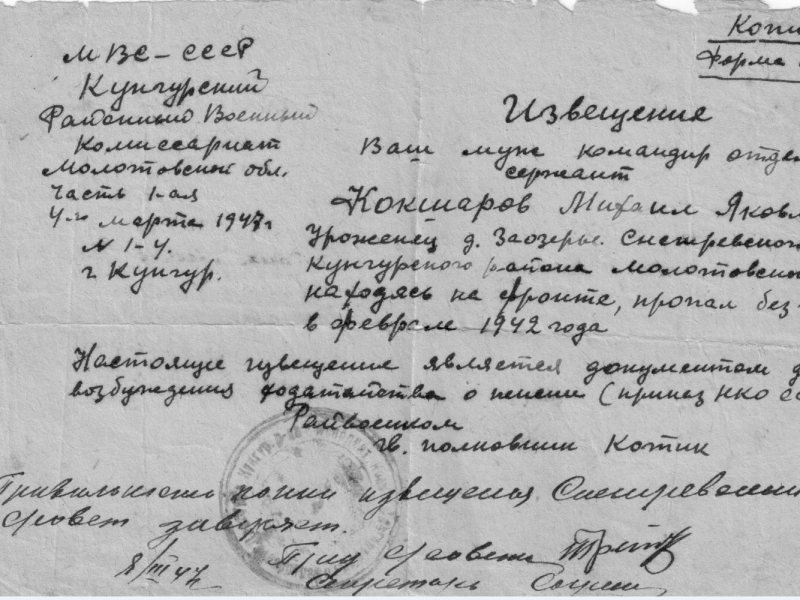 Копи
Форма
МВС-СССР
Кунгурский
Районный Военный
Комиссариат
Молотовской обл.
Часть 1-ая
4-го марта 1947г
N 1-4.
г Кунгур.
Извещение
Ваш муж командир отдел
сержант
Кокшаров Михаил Яковл
Уроженец д. Заозерье. Снегиревского
Кунгурского района Молотовской
находясь на фронте, пропал без-
в феврале 1942 года
Настоящие извещение является документом д
возбуждения ходатайства о пенсии (приказ НКО СС
Райвоенком
гв. полковник Котик
Правильность копии извещения Снегиревский
с/совет заверяет.
8/III 47
Пред с/совета
Секретарь